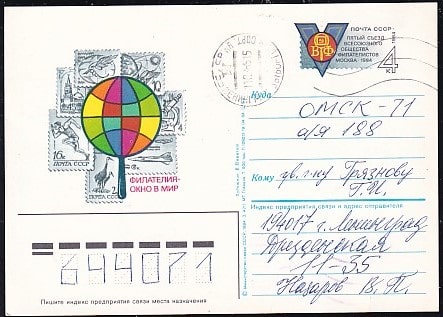 ПОЧТА СССР
ПЯТЫЙ СЪЕЗД
ВСЕСОЮЗНОГО
ОБЩЕСТВА
ФИЛАТЕЛИСТОВ
МОСКВА · 1984
ВОФ
4
КЦ
16к
ПОЧТА СССР
ФИЛАТЕЛИЯ-
ОКНО В МИР
Куда
ОМСК-71
а/я 188
Кому
гр-ну Грязнову
Г.И.
Индекс предприятия связи и адрес отправителя
194017 г. Ленинград
Дрезденская
11-35
Назаров В.П.
644071
Пишите индекс предприятия связи места назначения